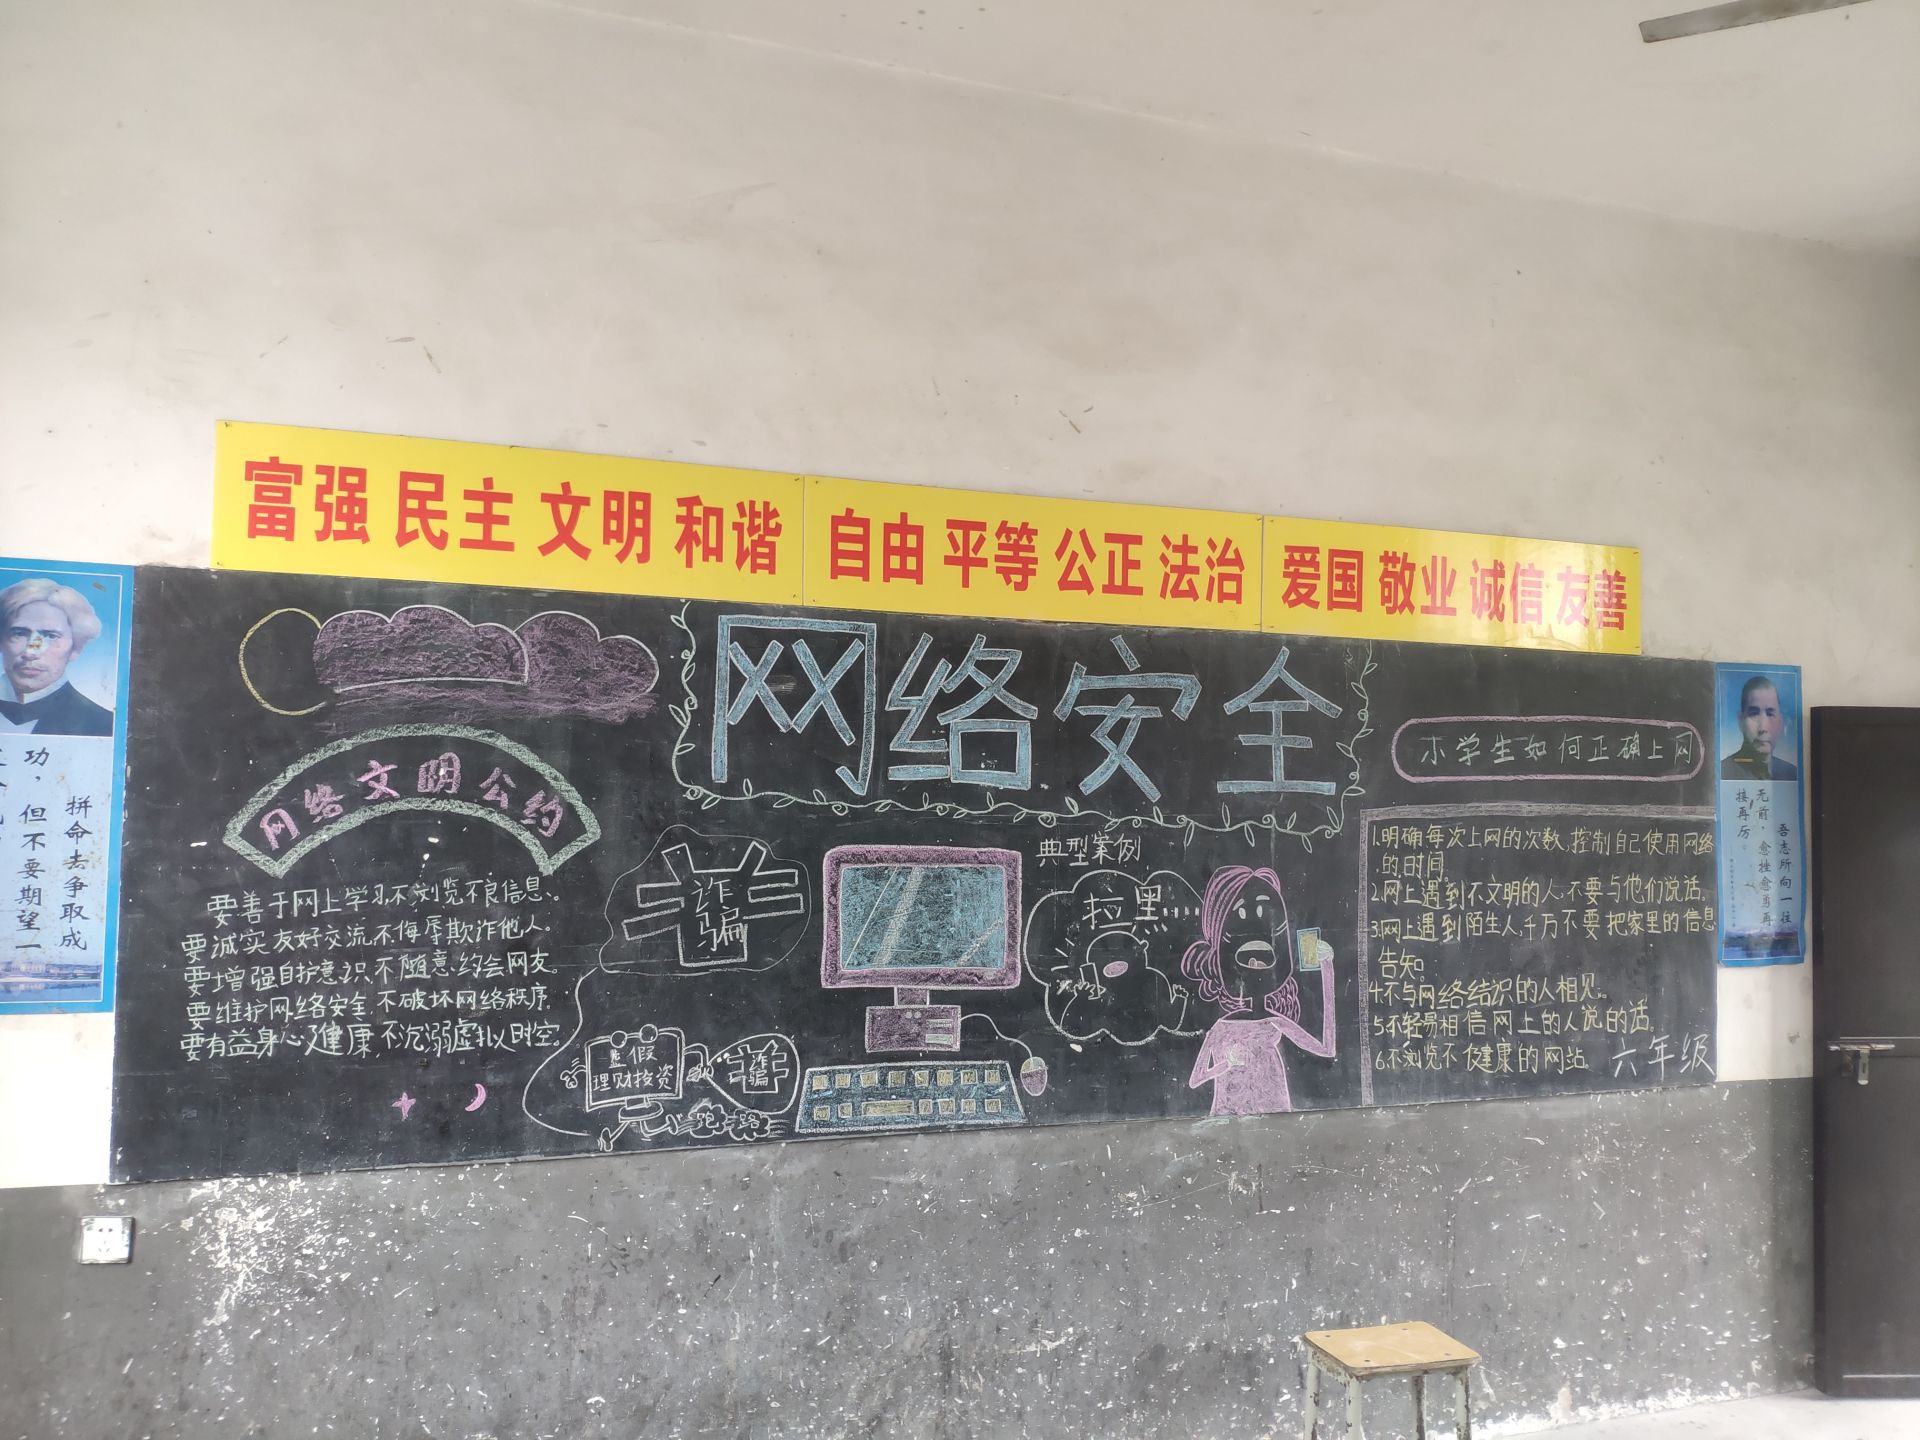 富强 民主 文明 和谐
自由 平等 公正 法治
爱国 敬业 诚信 友善
功，但不要期望一
拼命去争取成
网络文明公约
要善于网上学习,不浏览不良信息、
要诚实友好交流,不侮辱欺诈他人。
要增强自护意识,不随意约会网友。
要维护网络安全,不破坏网络秩序。
要有益身心健康,不沉溺虚拟时空。
网络安全
诈骗
理财投资
诈骗
典型案例
拉黑...
小学生如何正确上网
1.明确每次上网的次数,控制自己使用网络
的时间。
2.网上遇到不文明的人,不要与他们说话。
3.网上遇到陌生人,千万不要把家里的信息
告知。
4.不与网络结识的人相见。
5.不轻易相信网上的人说的话。
6.不浏览不健康的网站。
六年级
吾志所向一往
无前，愈挫愈勇再
接再厉。